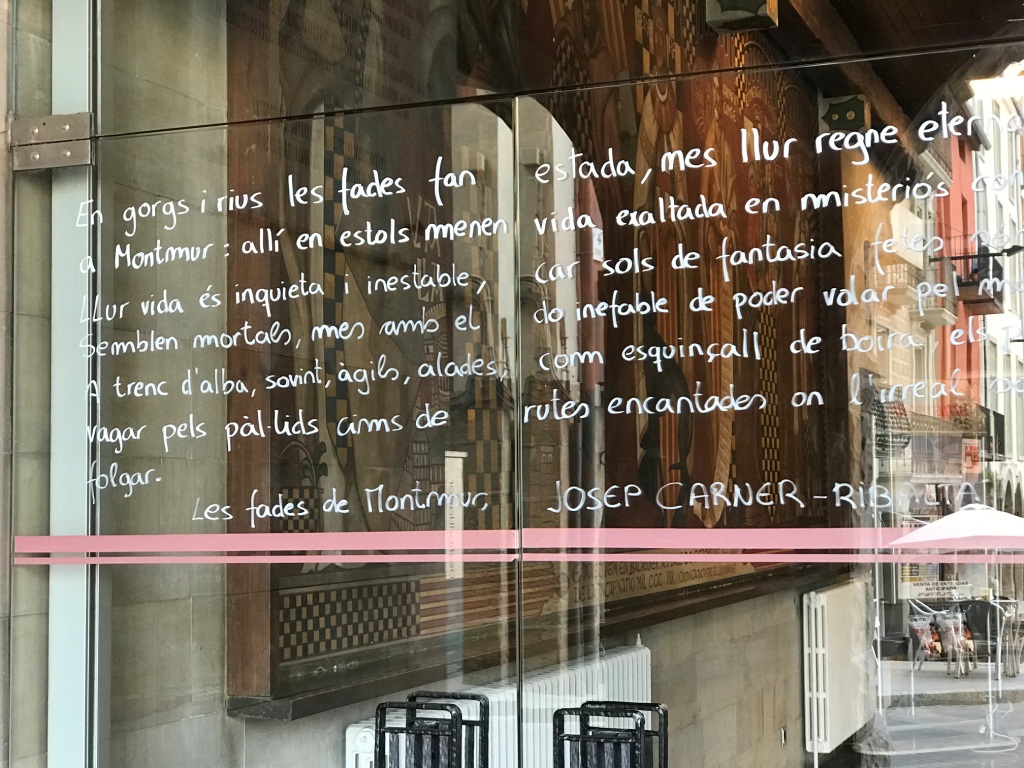 En gorgs i rius les fades fan estada, mes llur regne
a Montmur: allí en estols menen vida exaltada en misteriós
Llur vida és inquieta i inestable, car sols de fantasia fetes
Semblen mortals, mes amb el do inefable de poder volar pel
A trenc d'alba, sovint, àgils, alades, com esquinçall de boira, els
vagar pels pàl·lids cims de rutes encantades on l'irreal
folgar.
Les fades de Montmur, JOSEP CARNER-RIBALTA
VENTA DE ENTRADAS